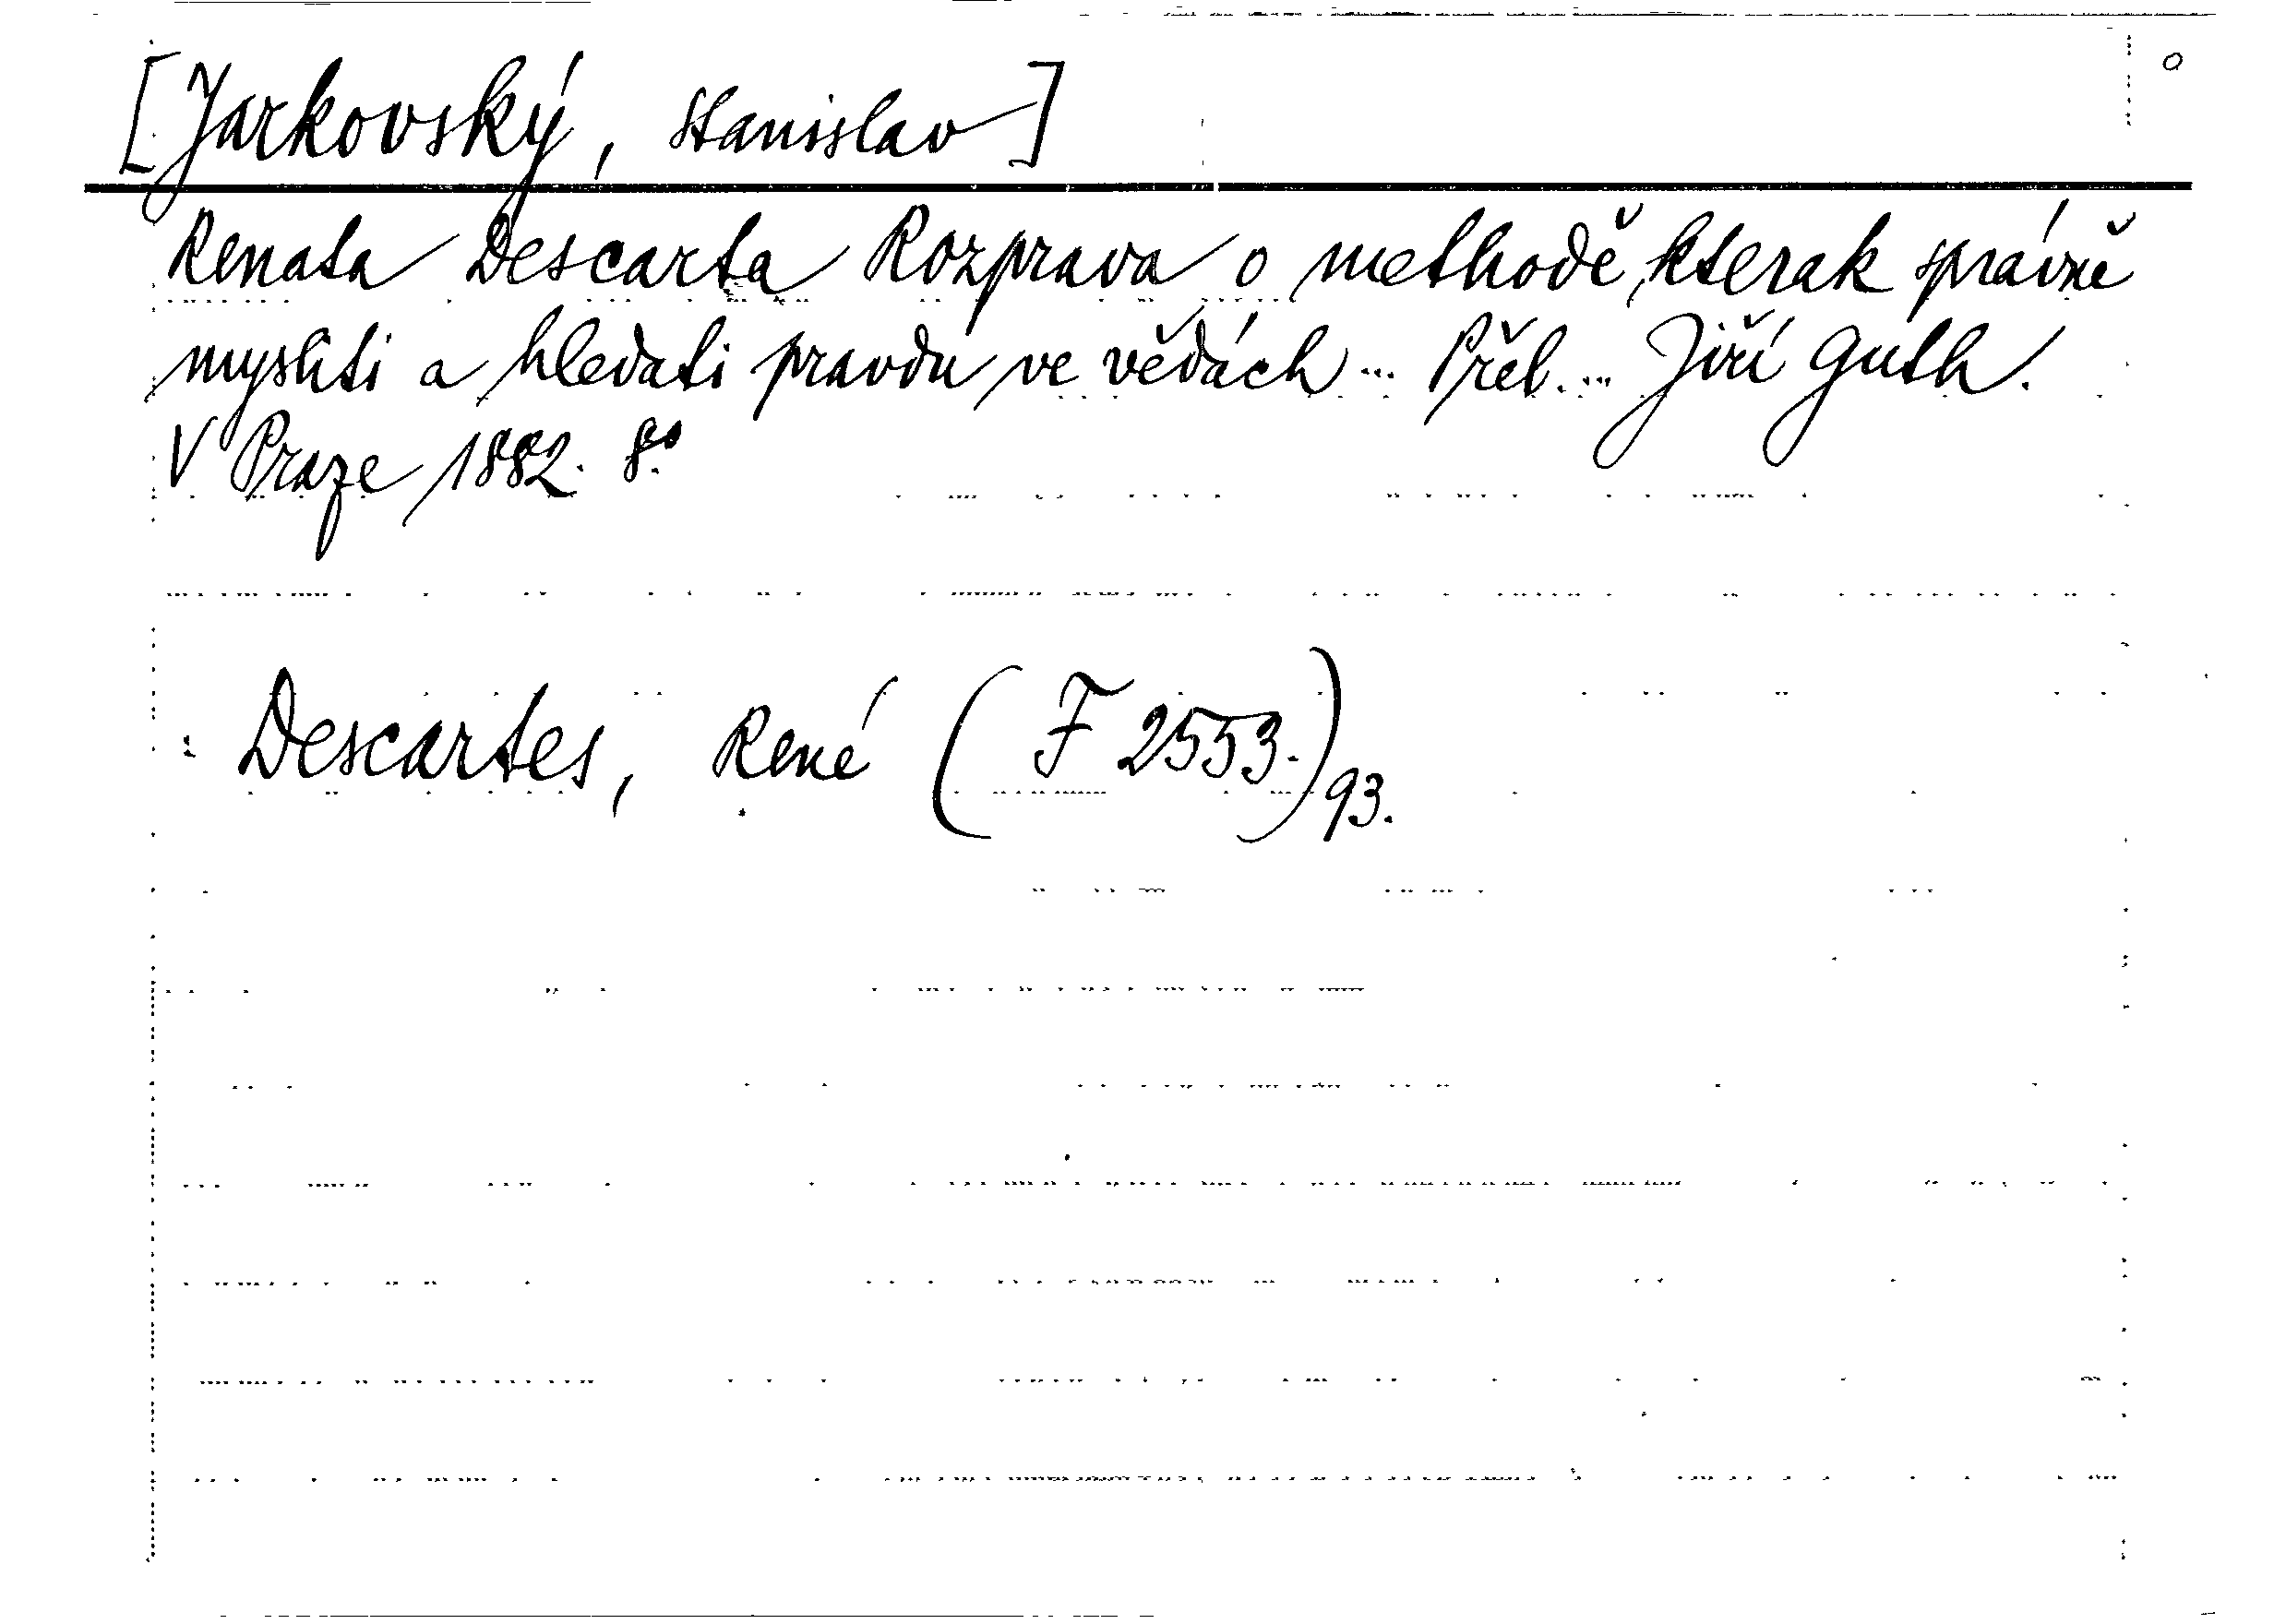 [Jarkovský, Stanislav]
Renata Descarta Rozprava o methodě, kterak správně
mysliti a hledati pravdu ve vědách ... Přel. ... Jiří Guth.
V Praze 1882. 8.°
: Descartes, René (F 2553.) 93.